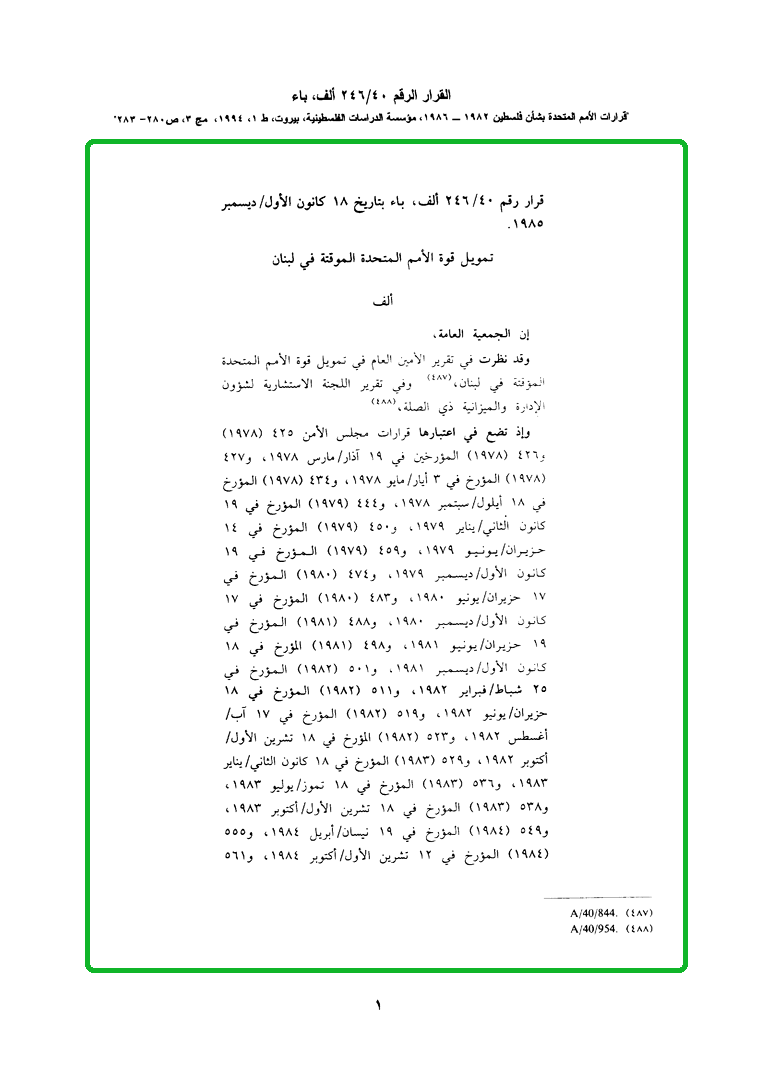 القرار الرقم ٢٤٦/٤٠ ألف، باء
"قرارات الأمم المتحدة بشأن فلسطين ١٩٨٢ – ١٩٨٦، مؤسسة الدراسات الفلسطينية، بيروت، ط ١، ١٩٩٤، مج ٣، ص٢٨٠- ٢٨٣"
قرار رقم ٢٤٦/٤٠ ألف، باء بتاريخ ١٨ كانون الأول/ديسمبر
١٩٨٥.
تمويل قوة الأمم المتحدة الموقتة في لبنان
ألف
إن الجمعية العامة،
وقد نظرت في تقرير الأمين العام في تمويل قوة الأمم المتحدة
المؤقتة في لبنان،(٤٨٧) وفي تقرير اللجنة الاستشارية لشؤون
الإدارة والميزانية ذي الصلة،(٤٨٨)
وإذ تضع في اعتبارها قرارات مجلس الأمن ٤٢٥ (١٩٧٨)
و٤٢٦ (١٩٧٨) المؤرخين في ١٩ آذار/مارس ١٩٧٨، و٤٢٧
(١٩٧٨) المؤرخ في ٣ أيار/مايو ١٩٧٨، و٤٣٤ (١٩٧٨) المؤرخ
في ١٨ أيلول/سبتمبر ١٩٧٨، و٤٤٤ (١٩٧٩) المؤرخ في ١٩
كانون الثاني/يناير ١٩٧٩، و٤٥٠ (١٩٧٩) المؤرخ في ١٤
حزيران/يونيو ١٩٧٩، و٤٥٩ (١٩٧٩) المؤرخ في ١٩
كانون الأول/ديسمبر ١٩٧٩، و٤٧٤ (١٩٨٠) المؤرخ في
١٧ حزيران/يونيو ١٩٨٠، و٤٨٣ (١٩٨٠) المؤرخ في ١٧
كانون الأول/ديسمبر ١٩٨٠، و٤٨٨ (١٩٨١) المؤرخ في
١٩ حزيران/يونيو ١٩٨١، و٤٩٨ (١٩٨١) المؤرخ في ١٨
كانون الأول/ديسمبر ١٩٨١، و٥٠١ (١٩٨٢) المؤرخ في
٢٥ شباط/فبراير ١٩٨٢، و٥١١ (١٩٨٢) المؤرخ في ١٨
حزيران/يونيو ١٩٨٢، و٥١٩ (١٩٨٢) المؤرخ في ١٧ آب/
أغسطس ١٩٨٢، و٥٢٣ (١٩٨٢) المؤرخ في ١٨ تشرين الأول/
أكتوبر ١٩٨٢، و٥٢٩ (١٩٨٣) المؤرخ في ١٨ كانون الثاني/يناير
١٩٨٣، و٥٣٦ (١٩٨٣) المؤرخ في ١٨ تموز/يوليو ١٩٨٣،
و٥٣٨ (١٩٨٣) المؤرخ في ١٨ تشرين الأول/أكتوبر ١٩٨٣،
و٥٤٩ (١٩٨٤) المؤرخ في ١٩ نيسان/أبريل ١٩٨٤، و٥٥٥
(١٩٨٤) المؤرخ في ١٢ تشرين الأول/أكتوبر ١٩٨٤، و٥٦١
(٤٨٧) A/40/844.
(٤٨٨) A/40/954.
١